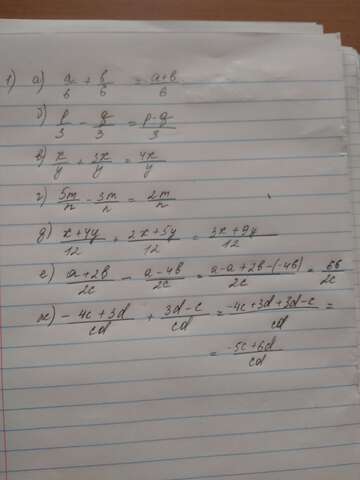 1) а) a/6 + b/6 = a+b/6
б) p/3 - g/3 = p-g/3
в) x/y + 3x/y = 4x/y
г) 5m/n - 3m/n = 2m/n
д) x+4y/12 + 2x+5y/12 = 3x+9y/12
е) a+2b/2c - a-4b/2c = a-a+2b-(-4b)/2c = 6b/2c
ж) -4c+3d/cd + 3d-c/cd = -4c+3d+3d-c/cd =
= -5c+6d/cd